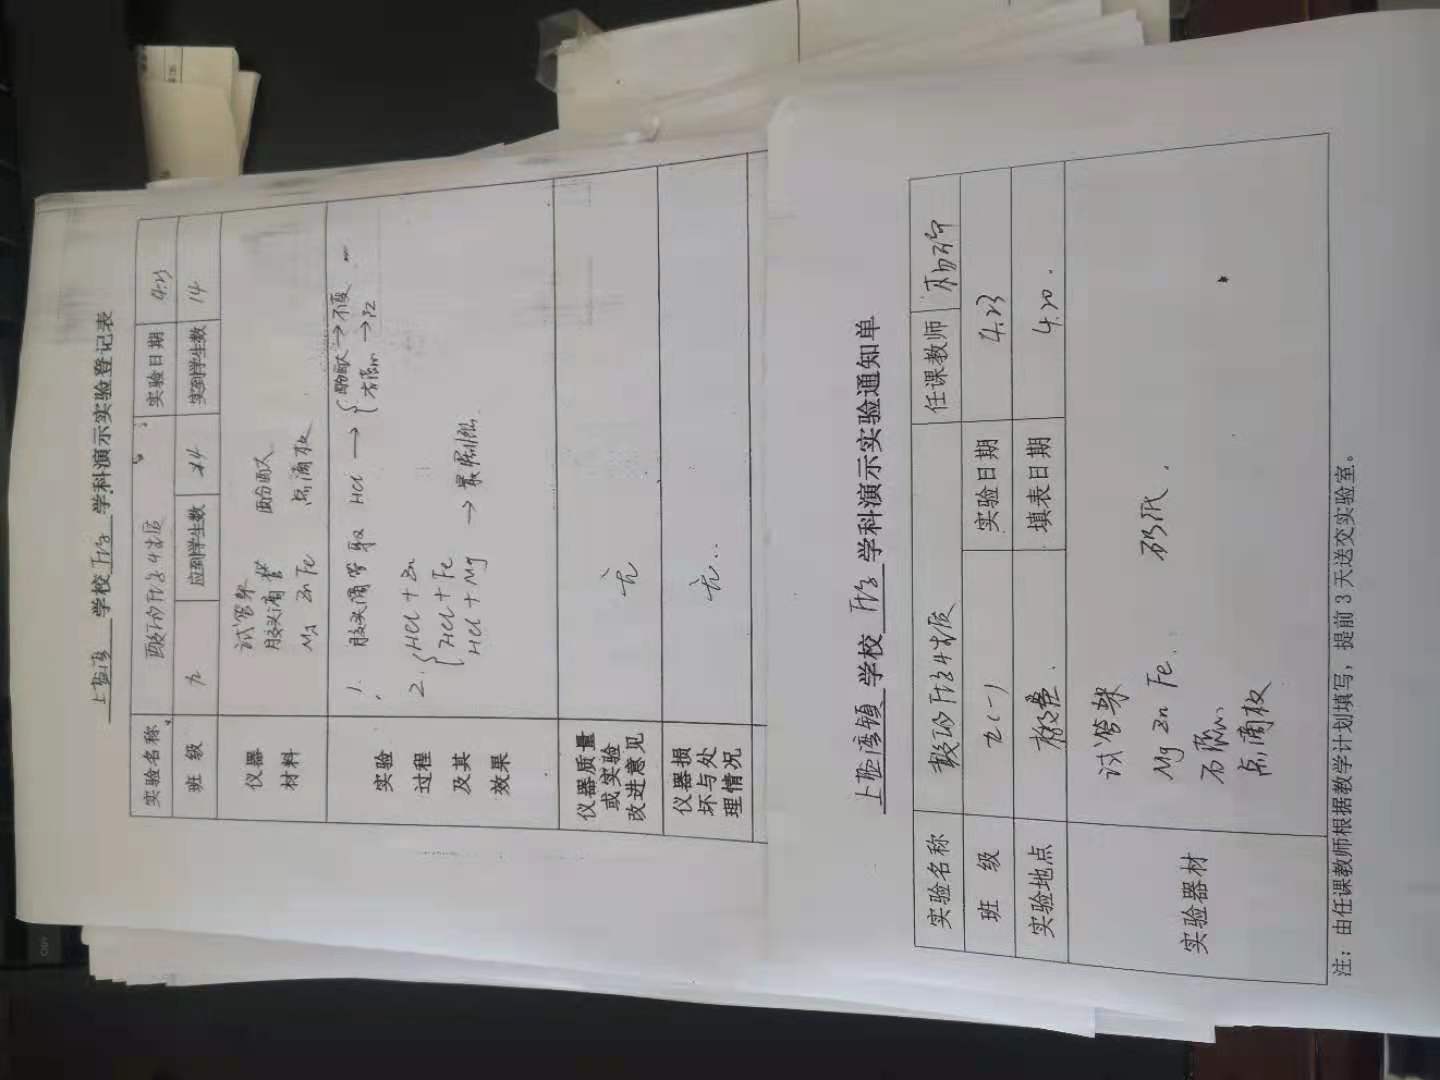 学校 化学 学科演示实验登记表
实验名称 酸的化学性质 实验日期 4.23
班 级 九 应到学生数 14 实到学生数 14
仪器材料
试管架
胶头滴管 酚酞
Mg Zn Fe 点滴板
实验过程及其效果
1. 胶头滴管取 HCl → { 酚酞 → 不变
石蕊 → 红
2. { HCl + Zn
HCl + Fe
HCl + Mg → 最剧烈
仪器质量或实验改进意见 无
仪器损坏与处理情况 无..
学校 化学 学科演示实验通知单
实验名称 酸的化学性质 任课教师
班 级 九(一) 实验日期 4.23
实验地点 填表日期 4.20.
实验器材
试管架
Mg Zn Fe.
石蕊
点滴板
注：由任课教师根据教学计划填写，提前 3 天送交实验室。